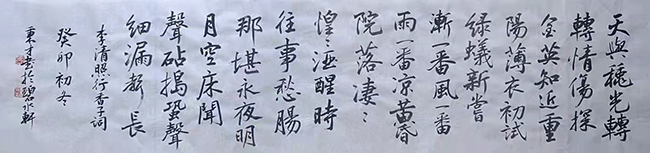 天與穐光轉
轉情傷探
金英知近重
陽薄衣初試
綠蟻新嘗
漸一番風一番
雨一番凉黄昏
院落凄〻
惶〻酒醒時
往事愁腸
那堪永夜明
月空床聞
聲砧搗蛩聲
細漏聲長
李清照行香子詞
癸卯初冬
秉才書於碧水軒